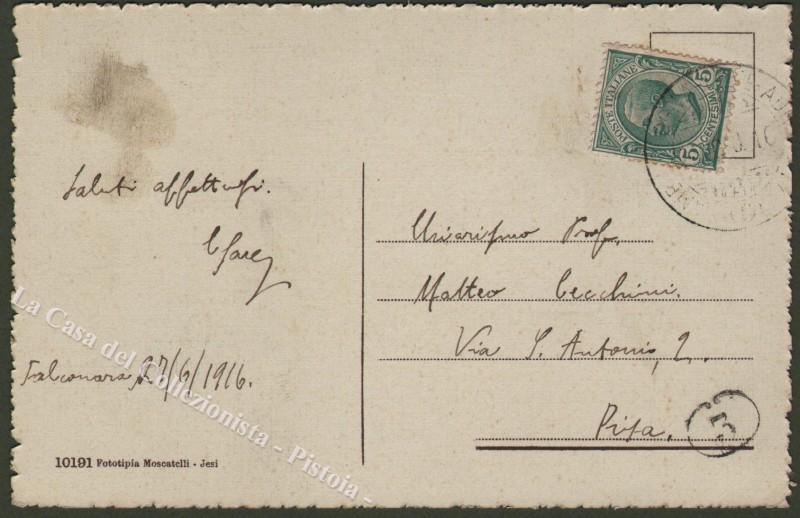 POSTE ITALIANE
5 CENTESIMI 5
Saluti affettuosi.
Falconara 27/6/1916.
10191 Fototipia Moscatelli - Jesi
Chiarissimo Prof.
Matteo Cecchini.
Via S. Antonio, 2.
Pisa.
La Casa del Collezionista - Pistoia -